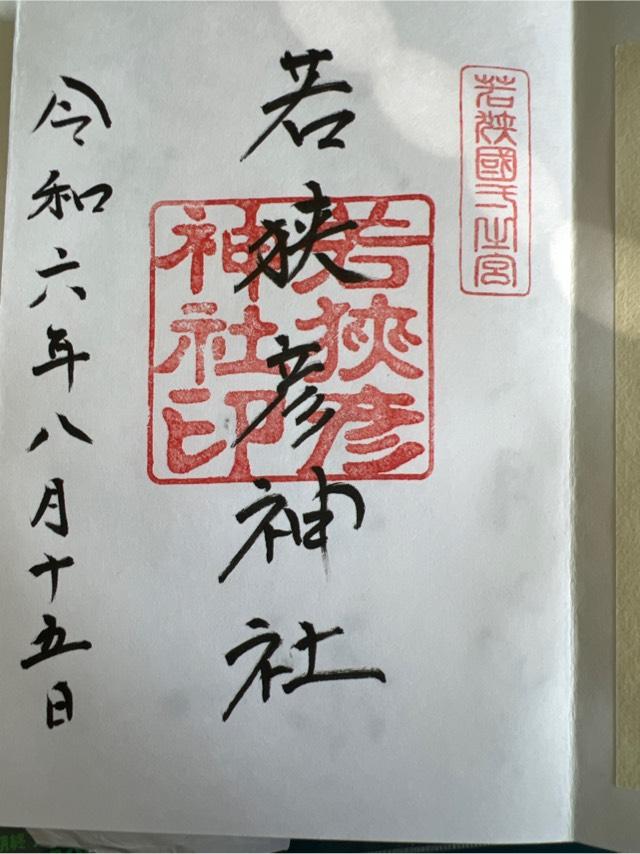 若狹國一之宮
若狭彦神社
若狹彦
神社印
令和六年八月十五日